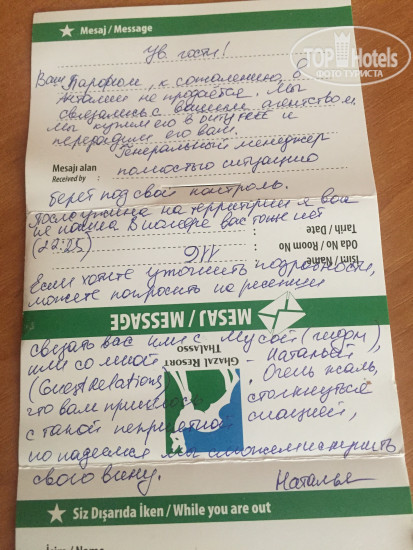 ★ Mesaj / Message
Ув гости!
TOP Hotels
ФОТО ТУРИСТА
Ваш Парфюм, к сожалению, в
Анталии не продается. Мы
связались с вашим агентством
мы купим его в Duty free и
передадим его вам.
Генеральный менеджер
Mesajı alan
Received by :
полностью ситуацию
берет под свой контроль.
После ужина на территории я вас
не нашла в номере вас тоже нет
(22:25)
Tarih / Date
Oda No / Room No
Isim / Name
Если хотите уточнить подробности,
можете попросить на ресепшн
MESAJ / MESSAGE
связать вас или с Мусой (гидом)
или со мной Наталья
(Guest relations). Очень жаль,
GHAZAL RESORT
THALASSO
что вам пришлось столкнуться
с такой неприятной ситуацией,
но надеемся мы сможем искупить
свою вину.
Наталья
★ Siz Dışarıda İken / While you are out
İsim / Name